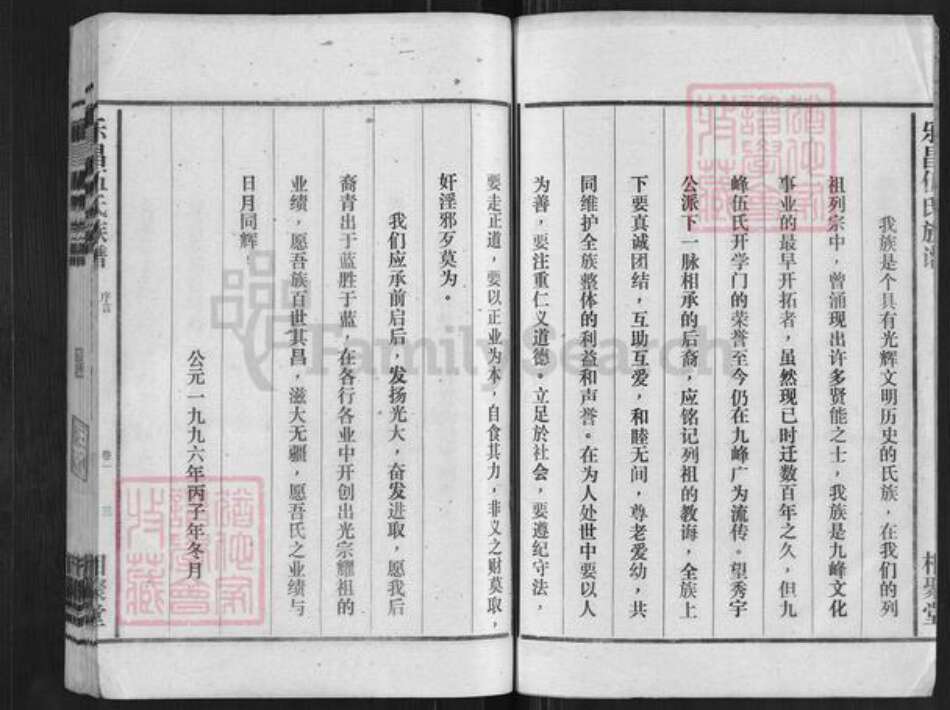 乐昌伍氏族谱
相聚堂
我族是个具有光辉文明历史的氏族，在我们的列
祖列宗中，曾涌现出许多贤能之士，我族是九峰文化
事业的最早开拓者，虽然现已时迁数百年之久，但九
峰伍氏开学门的荣誉至今仍在九峰广为流传。望秀宇
公派下一脉相承的后裔，应铭记列祖的教诲，全族上
下要真诚团结，互助互爱，和睦无间，尊老爱幼，共
同维护全族整体的利益和声誉。在为人处世中要以人
为善，要注重仁义道德。立足於社会，要遵纪守法，
要走正道，要以正业为本，自食其力，非义之财莫取，
奸淫邪歹莫为。
我们应承前启后，发扬光大，奋发进取，愿我后
裔青出于蓝胜于蓝，在各行各业中开创出光宗耀祖的
业绩，愿吾族百世其昌，滋大无疆，愿吾氏之业绩与
日月同辉！
公元一九九六年丙子年冬月
乐昌伍氏族谱
序言
卷一
相聚堂
FamilySearch